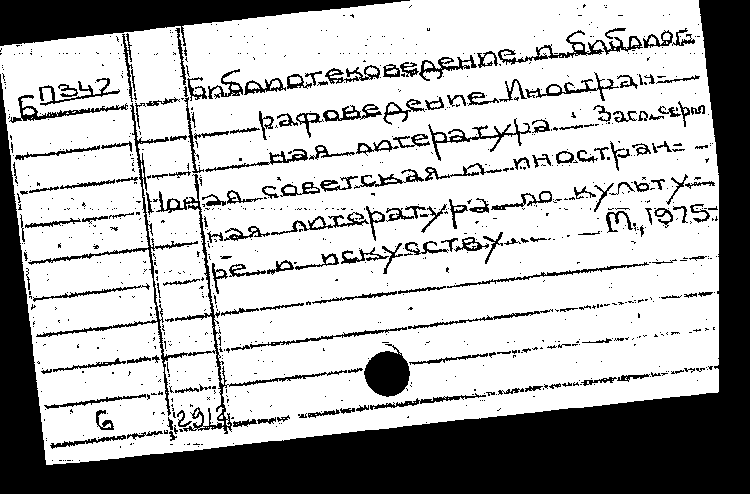 Б П342
Библиотековедение и библиог-
рафоведение Иностран-
ная литература. Загл.серт
Новая советская и иностран-
ная литература по культу-
ре и искусству... М, 1975.
6 2912